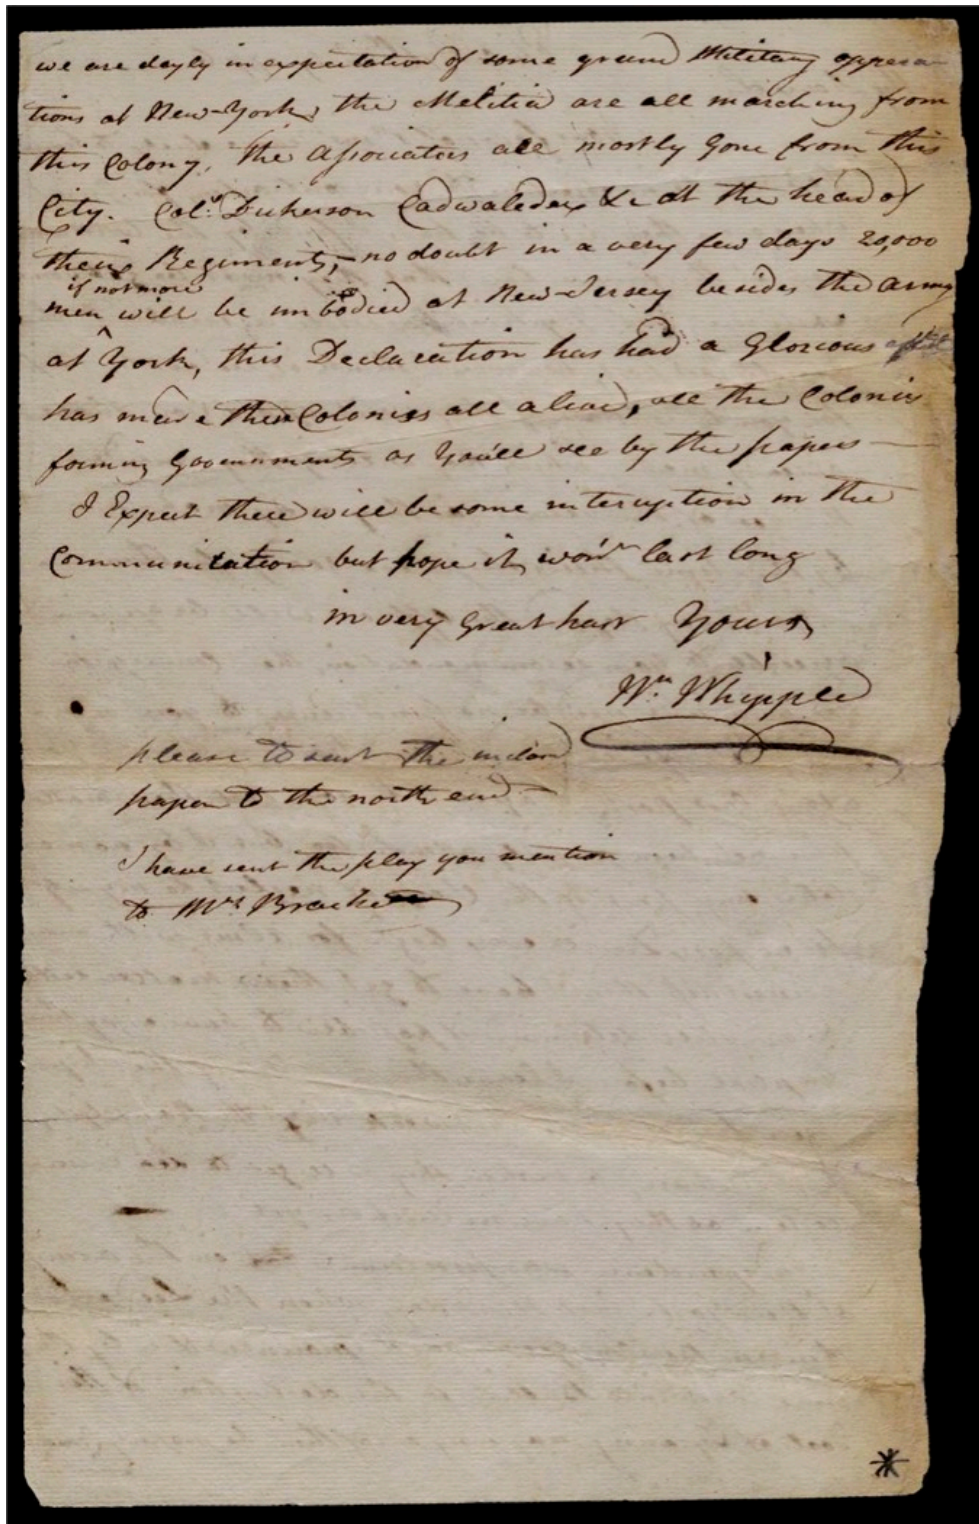 we are dayly in expectation of some grand Military oppera-
tions at New-York, the Melitia are all marching from
this Colony, the Associators are mostly Gone from this
City. Col.s Dickerson Cadwaleder &c at the head of
their Regiments,- no doubt in a very few days 20,000
if not more
men will be imbodied at New-Jersey besides the army
at York, this Declaration has had a Glorious effect
has made these Colonies all alive, all the Colonies
forming Governments as you'll see by the papers —
I Expect there will be some interuption in the
Communication but hope it won't last long
in very Great hast Yours
Wm. Whipple
please to sent the inclosd
paper to the north end —
I have sent the play you mention
to Mrs Brackett